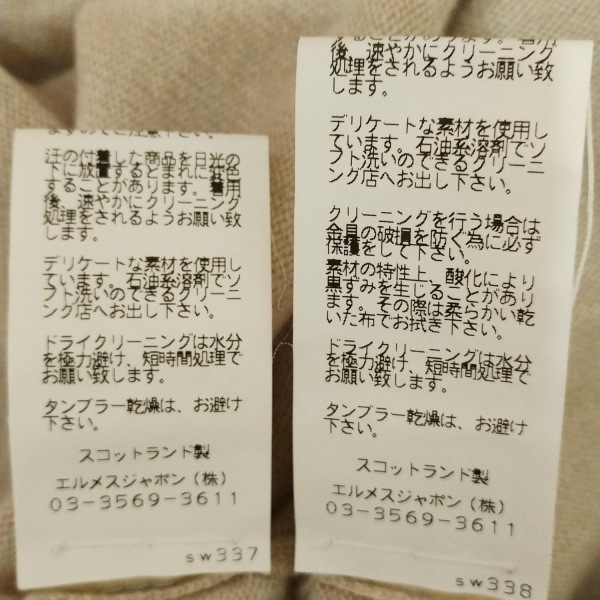 ますのでご注意下さい。
汗の付着した商品を日光の
下に放置するとまれに変色
することがあります。着用
後、速やかにクリーニング
処理をされるようお願い致
します。
デリケートな素材を使用し
ています。石油系溶剤でソ
フト洗いのできるクリーニ
ング店へお出し下さい。
ドライクリーニングは水分
を極力避け、短時間処理で
お願い致します。
タンブラー乾燥は、お避け
下さい。
スコットランド製
エルメスジャポン(株)
03-3569-3611
sw337
することがあります。着用
後、速やかにクリーニング
処理をされるようお願い致
します。
デリケートな素材を使用し
ています。石油系溶剤でソ
フト洗いのできるクリーニ
ング店へお出し下さい。
クリーニングを行う場合は
金具の破損を防ぐ為に必ず
保護をして下さい。
素材の特性上、酸化により
黒ずみを生じることがあり
ます。その際は柔らかい乾
いた布でお拭き下さい。
ドライクリーニングは水分
を極力避け、短時間処理で
お願い致します。
タンブラー乾燥は、お避け
下さい。
スコットランド製
エルメスジャポン(株)
03-3569-3611
sw338